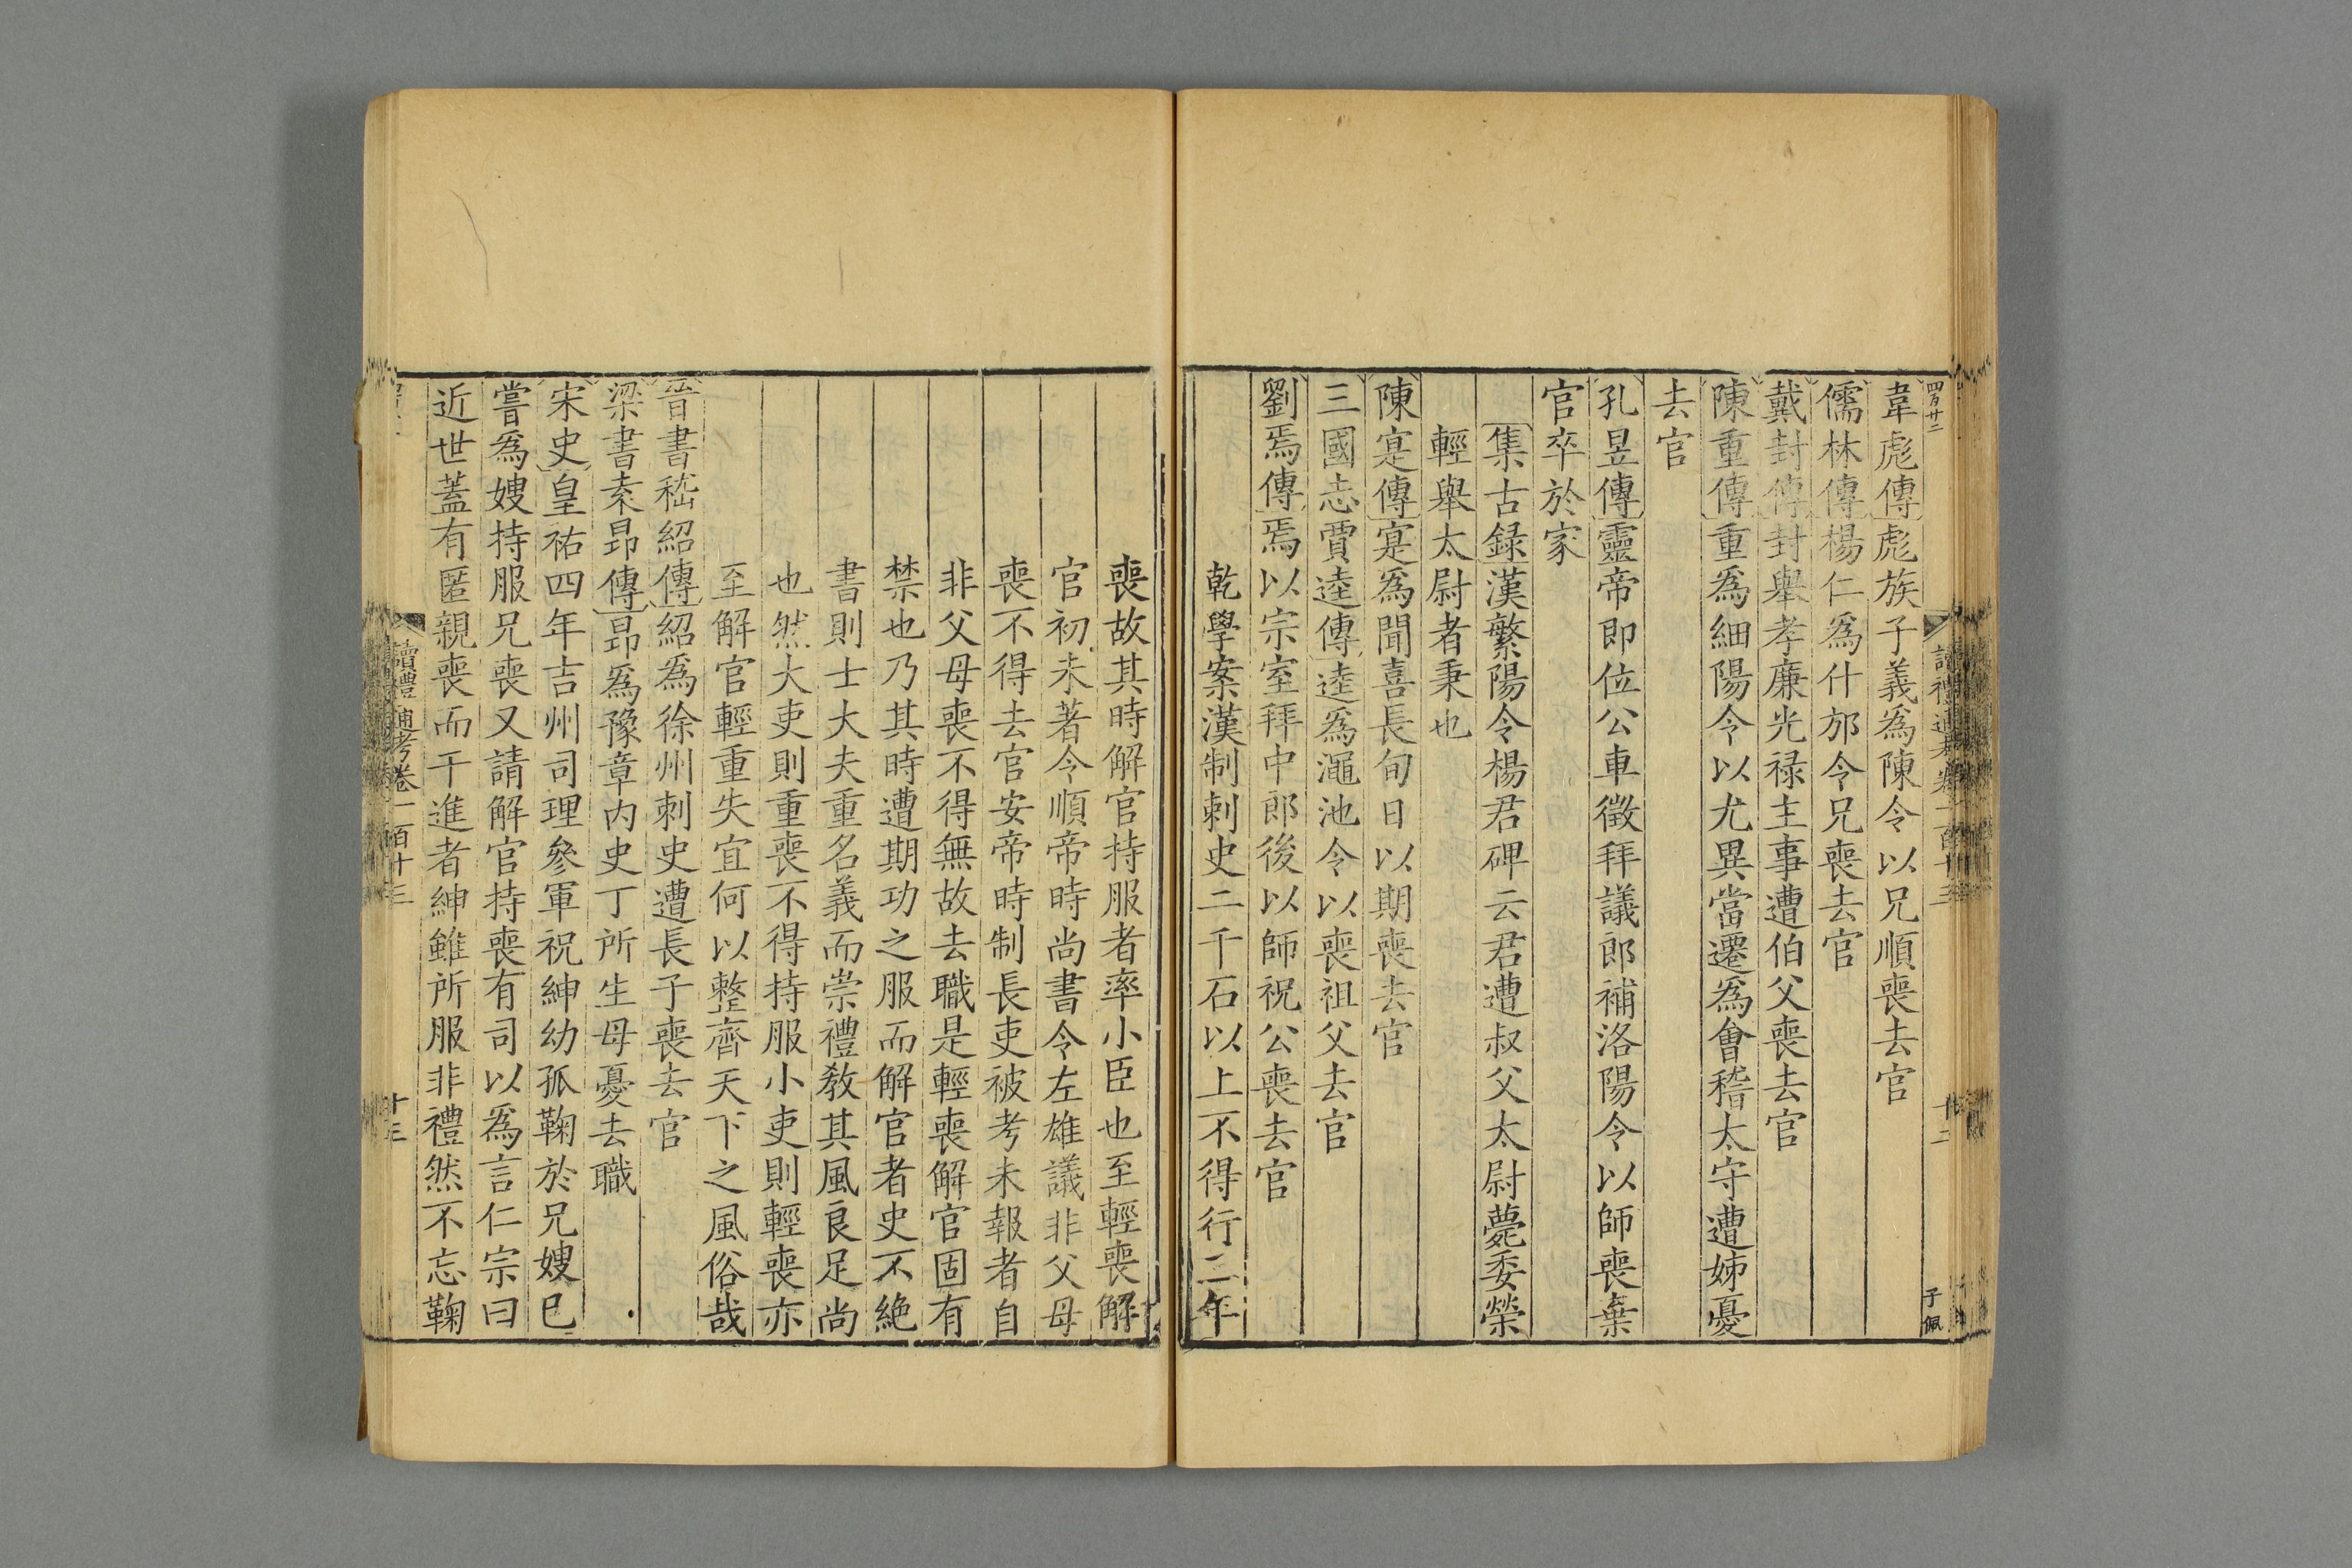 四百廿二
讀禮通考卷一百十三
十二
子佩
韋彪傳彪族子義爲陳令以兄順喪去官
儒林傳楊仁爲什邡令兄喪去官
戴封傳封舉孝廉光禄主事遭伯父喪去官
陳重傳重爲細陽令以尤異當遷爲會稽太守遭姊憂
去官
孔昱傳靈帝即位公車徵拜議郎補洛陽令以師喪棄
官卒於家
集古録漢繁陽令楊君碑云君遭叔父太尉薨委榮
輕舉太尉者秉也
陳寔傳寔爲聞喜長旬日以期喪去官
三國志賈逵傳逵爲澠池令以喪祖父去官
劉焉傳焉以宗室拜中郎後以師祝公喪去官
乾學案漢制刺史二千石以上不得行二年
喪故其時解官持服者率小臣也至輕喪解
官初未著令順帝時尚書令左雄議非父母
喪不得去官安帝時制長吏被考未報者自
非父母喪不得無故去職是輕喪解官固有
禁也乃其時遭期功之服而解官者史不絶
書則士大夫重名義而崇禮教其風良足尚
也然大吏則重喪不得持服小吏則輕喪亦
至解官輕重失宜何以整齊天下之風俗哉
晉書嵇紹傳紹爲徐州刺史遭長子喪去官
梁書袁昂傳昂爲豫章内史丁所生母憂去職
宋史皇祐四年吉州司理參軍祝紳幼孤鞠於兄嫂已
嘗爲嫂持服兄喪又請解官持喪有司以爲言仁宗曰
近世蓋有匿親喪而干進者紳雖所服非禮然不忘鞠
讀禮通考卷一百十三
十三